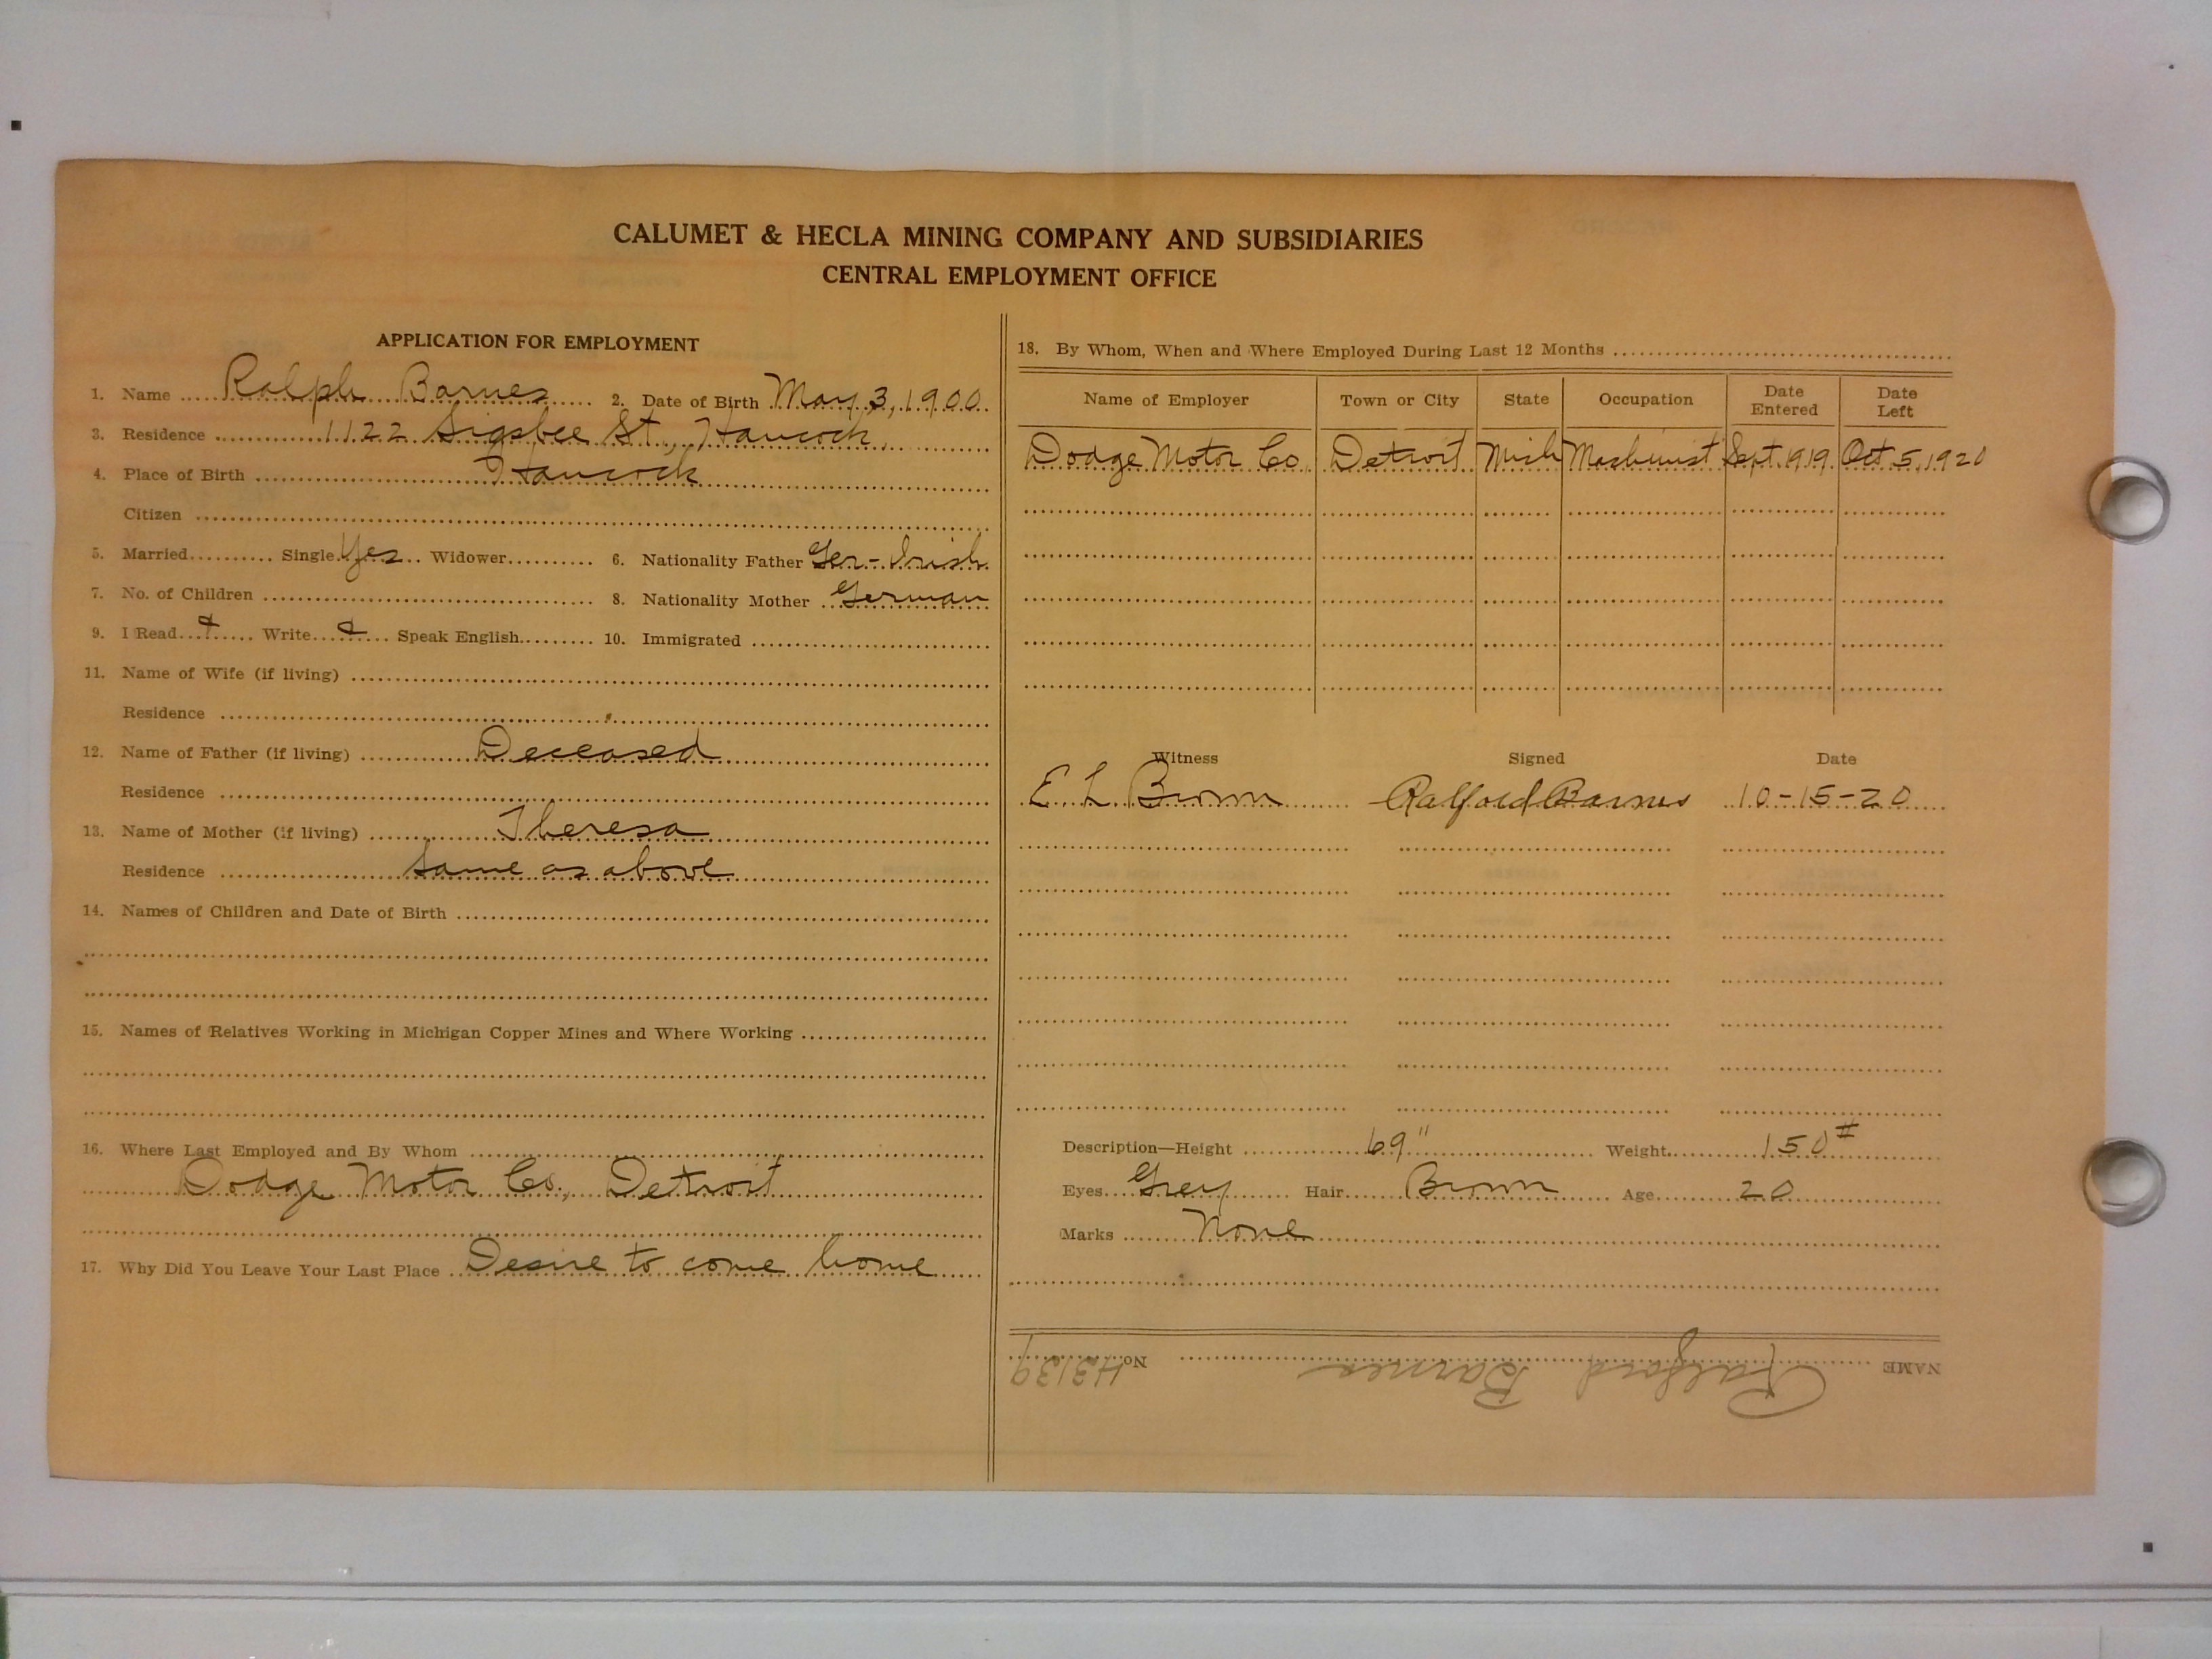 CALUMET & HECLA MINING COMPANY AND SUBSIDIARIES
CENTRAL EMPLOYMENT OFFICE
APPLICATION FOR EMPLOYMENT
1. Name Ralph Barnes 2. Date of Birth May 3, 1900
3. Residence 1122 Sigsbee St., Hancock
4. Place of Birth Hancock
Citizen
5. Married Single Yes Widower 6. Nationality Father Ger-Irish
7. No. of Children 8. Nationality Mother German
9. I Read & Write & Speak English 10. Immigrated
11. Name of Wife (if living)
Residence
12. Name of Father (if living) Deceased
Residence
13. Name of Mother (if living) Theresa
Residence Same as above
14. Names of Children and Date of Birth
15. Names of Relatives Working in Michigan Copper Mines and Where Working
16. Where Last Employed and By Whom
Dodge Motor Co., Detroit
17. Why Did You Leave Your Last Place Desire to come home
18. By Whom, When and Where Employed During Last 12 Months
Name of Employer Town or City State Occupation Date Entered Date Left
Dodge Motor Co Detroit Mich Machinist Sept. 1919 Oct 5, 1920
Witness Signed Date
E. L. Brown Ralford Barnes 10-15-20
Description—Height 69" Weight 150#
Eyes Grey Hair Brown Age 20
Marks None
NAME Ralford Barnes No. H3139